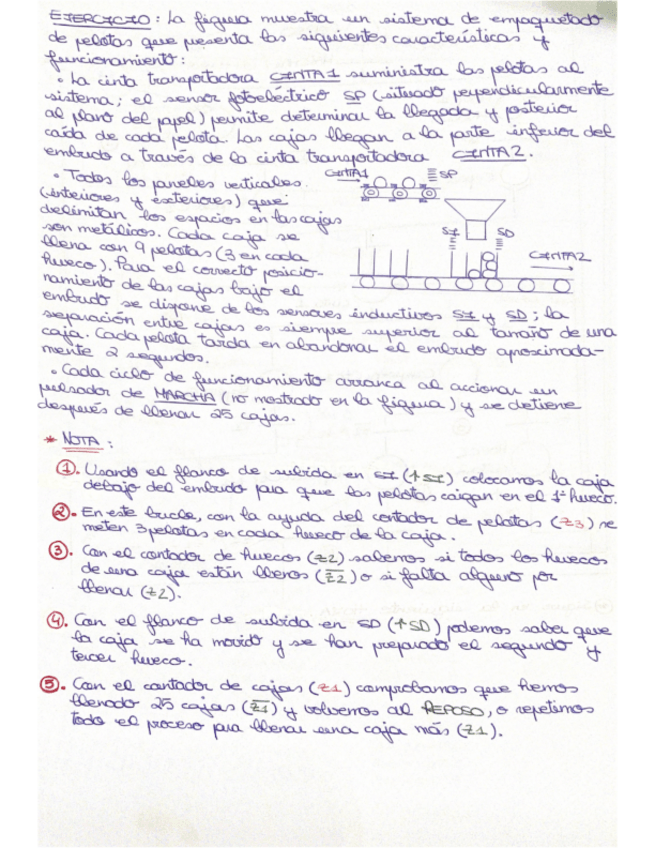 EJERCICIO: La figura muestra un sistema de empaquetado
de pelotas que presenta las siguientes características y
funcionamiento:
• La cinta transportadora CINTA1 suministra las pelotas al
sistema; el sensor fotoeléctrico SP (situado perpendicularmente
al plano del papel) permite determinar la llegada y posterior
caída de cada pelota. Las cajas llegan a la parte inferior del
embudo a través de la cinta transportadora CINTA2.
• Todos los paneles verticales
(interiores y exteriores) que
delimitan los espacios en las cajas
son metálicos. Cada caja se
llena con 9 pelotas (3 en cada
hueco). Para el correcto posicio-
namiento de las cajas bajo el
embudo se dispone de los sensores inductivos SI y SD; la
separación entre cajas es siempre superior al tamaño de una
caja. Cada pelota tarda en abandonar el embudo aproximada-
mente 2 segundos.
CINTA1
SP
SI
SD
CINTA2
• Cada ciclo de funcionamiento arranca al accionar un
pulsador de MARCHA (no mostrado en la figura) y se detiene
después de llenar 25 cajas.
* NOTA:
1. Usando el flanco de subida en SI (↑SI) colocamos la caja
debajo del embudo para que las pelotas caigan en el 1º hueco.
2. En este bucle, con la ayuda del contador de pelotas (Z3) se
meten 3 pelotas en cada hueco de la caja.
3. Con el contador de huecos (Z2) sabemos si todos los huecos
de una caja están llenos (Z̅2̅) o si falta alguno por
llenar (Z2).
4. Con el flanco de subida en SD (↑SD) podemos saber que
la caja se ha movido y se han preparado el segundo y
tercer hueco.
5. Con el contador de cajas (Z1) comprobamos que hemos
llenado 25 cajas (Z̅1̅) y volvemos al REPOSO, o repetimos
todo el proceso para llenar una caja más (Z1).